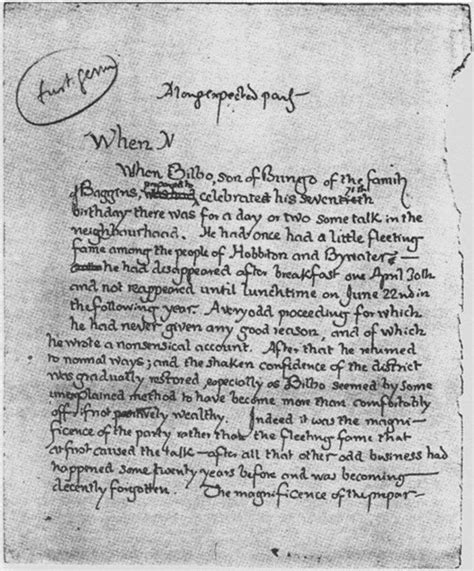 first germ
A long expected party
When N
When Bilbo, son of Bungo of the family
prepared to
of Baggins, celebrated his seventieth
birthday there was for a day or two some talk in the
neighbourhood. He had once had a little fleeting
fame among the people of Hobbiton and Bywater –
he had disappeared after breakfast one April 30th
and not reappeared until lunchtime on June 22nd in
the following year. A very odd proceeding for which
he had never given any good reason, and of which
he wrote a nonsensical account. After that he returned
to normal ways; and the shaken confidence of the district
was gradually restored, especially as Bilbo seemed by some
unexplained method to have become more than comfortably
off, if not positively wealthy. Indeed it was the magni-
ficence of the party rather than the fleeting fame that
at first caused the talk – after all that other odd business had
happened some twenty years before and was becoming
decently forgotten. The magnificence of the prepar-